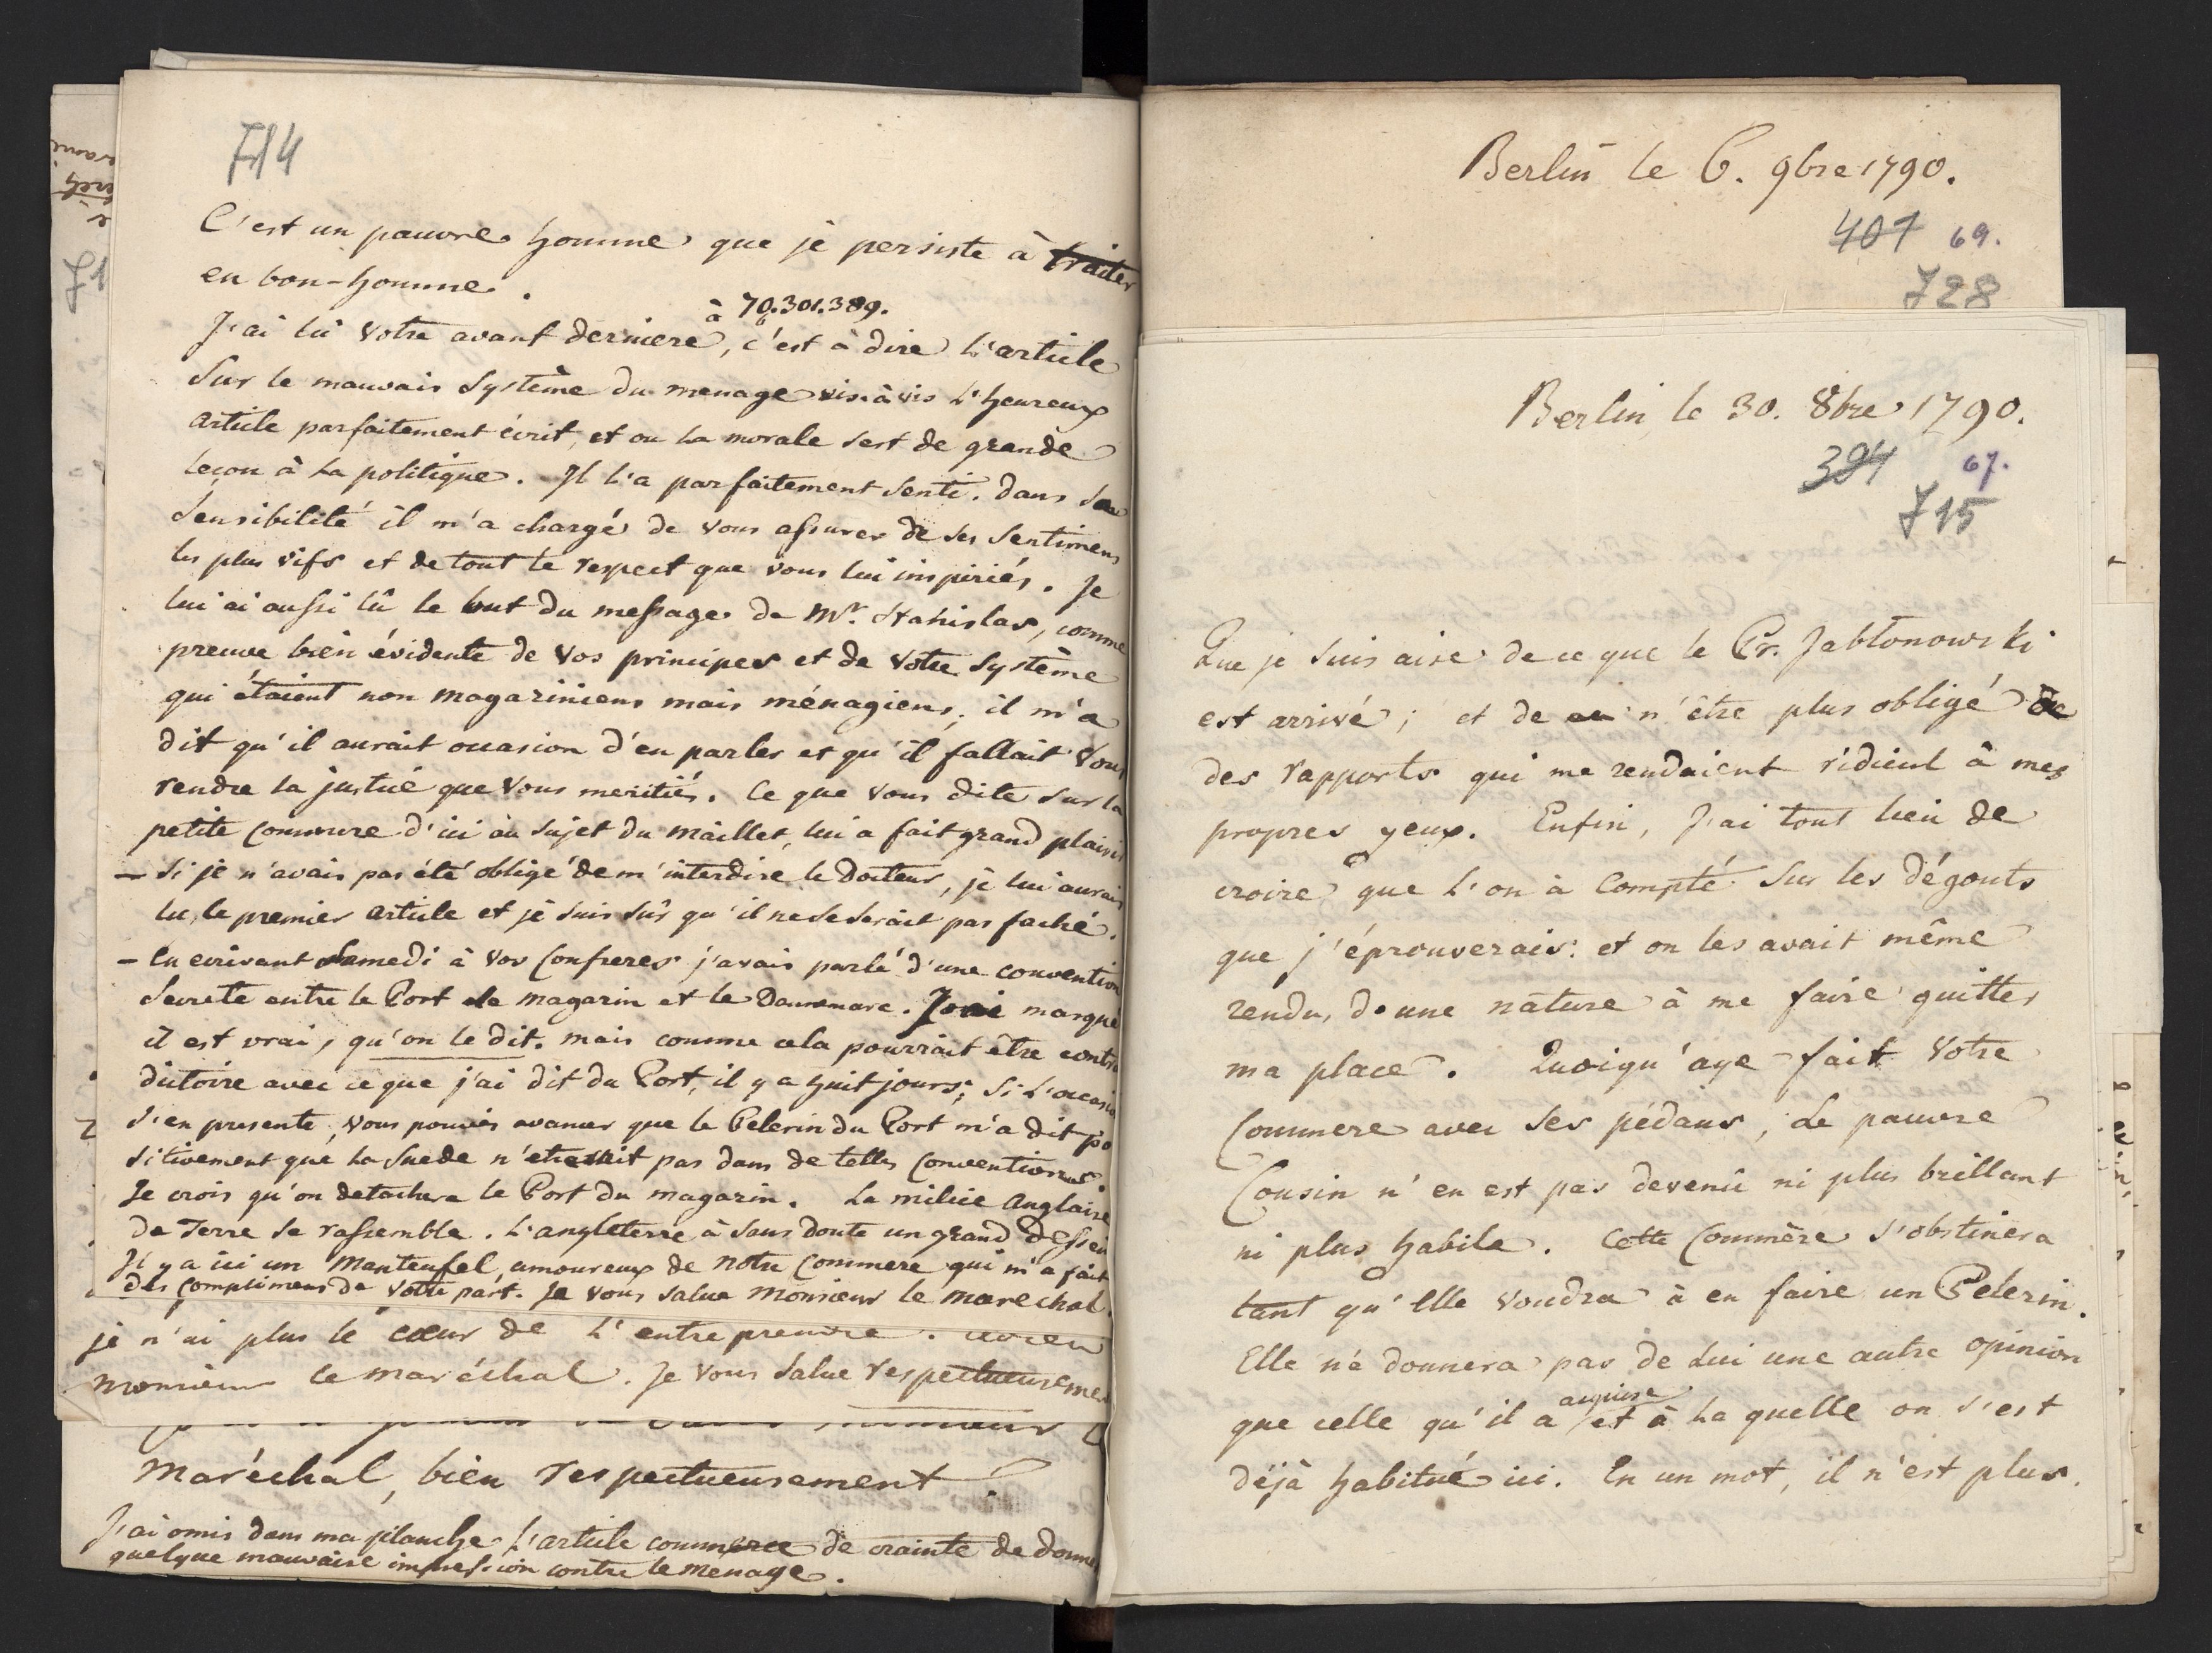 714
C'est un pauvre homme que je persiste à traiter
en bon-homme.
à 70.301.389.
J'ai lû votre avant derniere, c'est à dire L'article
sur le mauvais Système du menage vis-à-vis L'heureux
article parfaitement écrit, et ou La morale sert de grande
leçon à La politique. Il l'a parfaitement senti. dans sa
sensibilité il m'a chargé de vous assurer de ses sentimens
les plus vifs et de tout le respect que vous lui inspiriés. Je
lui ai aussi lû le but du message de Mr. Stanislas, comme
preuve bien évidente de vos principes et de votre Système
qui étaient non magaziniens mais ménagiens, il m'a
dit qu'il aurait occasion d'en parler et qu'il fallait vous
rendre la justice que vous meritiés. Ce que vous dite sur la
petite commere d'ici au sujet du maillet, lui a fait grand plaisir
— si je n'avais pas été obligé de m'interdire le Docteur, je lui aurais
lu, le premier article et je suis sûr qu'il ne se serait pas faché.
— En ecrivant Samedi à vos Confreres j'avais parlé d'une convention
secrete entre le Port le magazin et le Dannemarc. J'ai marqué
il est vrai, qu'on le dit. mais comme cela pourrait être contra
dictoire avec ce que j'ai dit du Port, il y a huit jours; si L'occasion
s'en presente, vous pouviés avancer que le Pelerin du Port m'a dit po
sitivement que La Suede n'etrerait pas dans de telles Conventions.
Je crois qu'on detachera le Port du magazin. La milice Anglaise
de Terre se rassemble. L'angleterre à sans doute un grand dessein
Il y a ici un Manteufel, amoureux de notre Commere qui m'a fait
des complimens de votre part. Je vous salue Monsieur le marechal.
je n'ai plus le cœur de L'entreprendre.
Monsieur le maréchal. Je vous salue respectueusement
Maréchal, bien respectueusement.
J'ai omis dans ma planche L'article commerce de crainte de donner
quelque mauvaise impression contre le menage.
Berlin le 6. 9bre 1790.
407 69.
728
Berlin, le 30. 8bre 1790.
394 67.
715
Que je suis aise de ce que le Pr. Jabłonowski
est arrivé; et de n'être plus obligé de
des rapports qui me rendaient ridicul à mes
propres yeux. Enfin, J'ai tout lieu de
croire que L'on à Compté sur les dégouts
que j'éprouverais: et on les avait même
rendu, d'une nature à me faire quitter
ma place. Quoiqu'aye fait votre
Commere avec ses pédans, Le pauvre
Cousin n'en est pas devenû ni plus brillant
ni plus habile. Cette Commère s'obstinera
tant qu'Elle voudra à en faire un Pelerin.
Elle ne donnera pas de Lui une autre opinion
acquise
que celle qu'il a et à La quelle on s'est
déjà habitué ici. En un mot, il n'est plus.